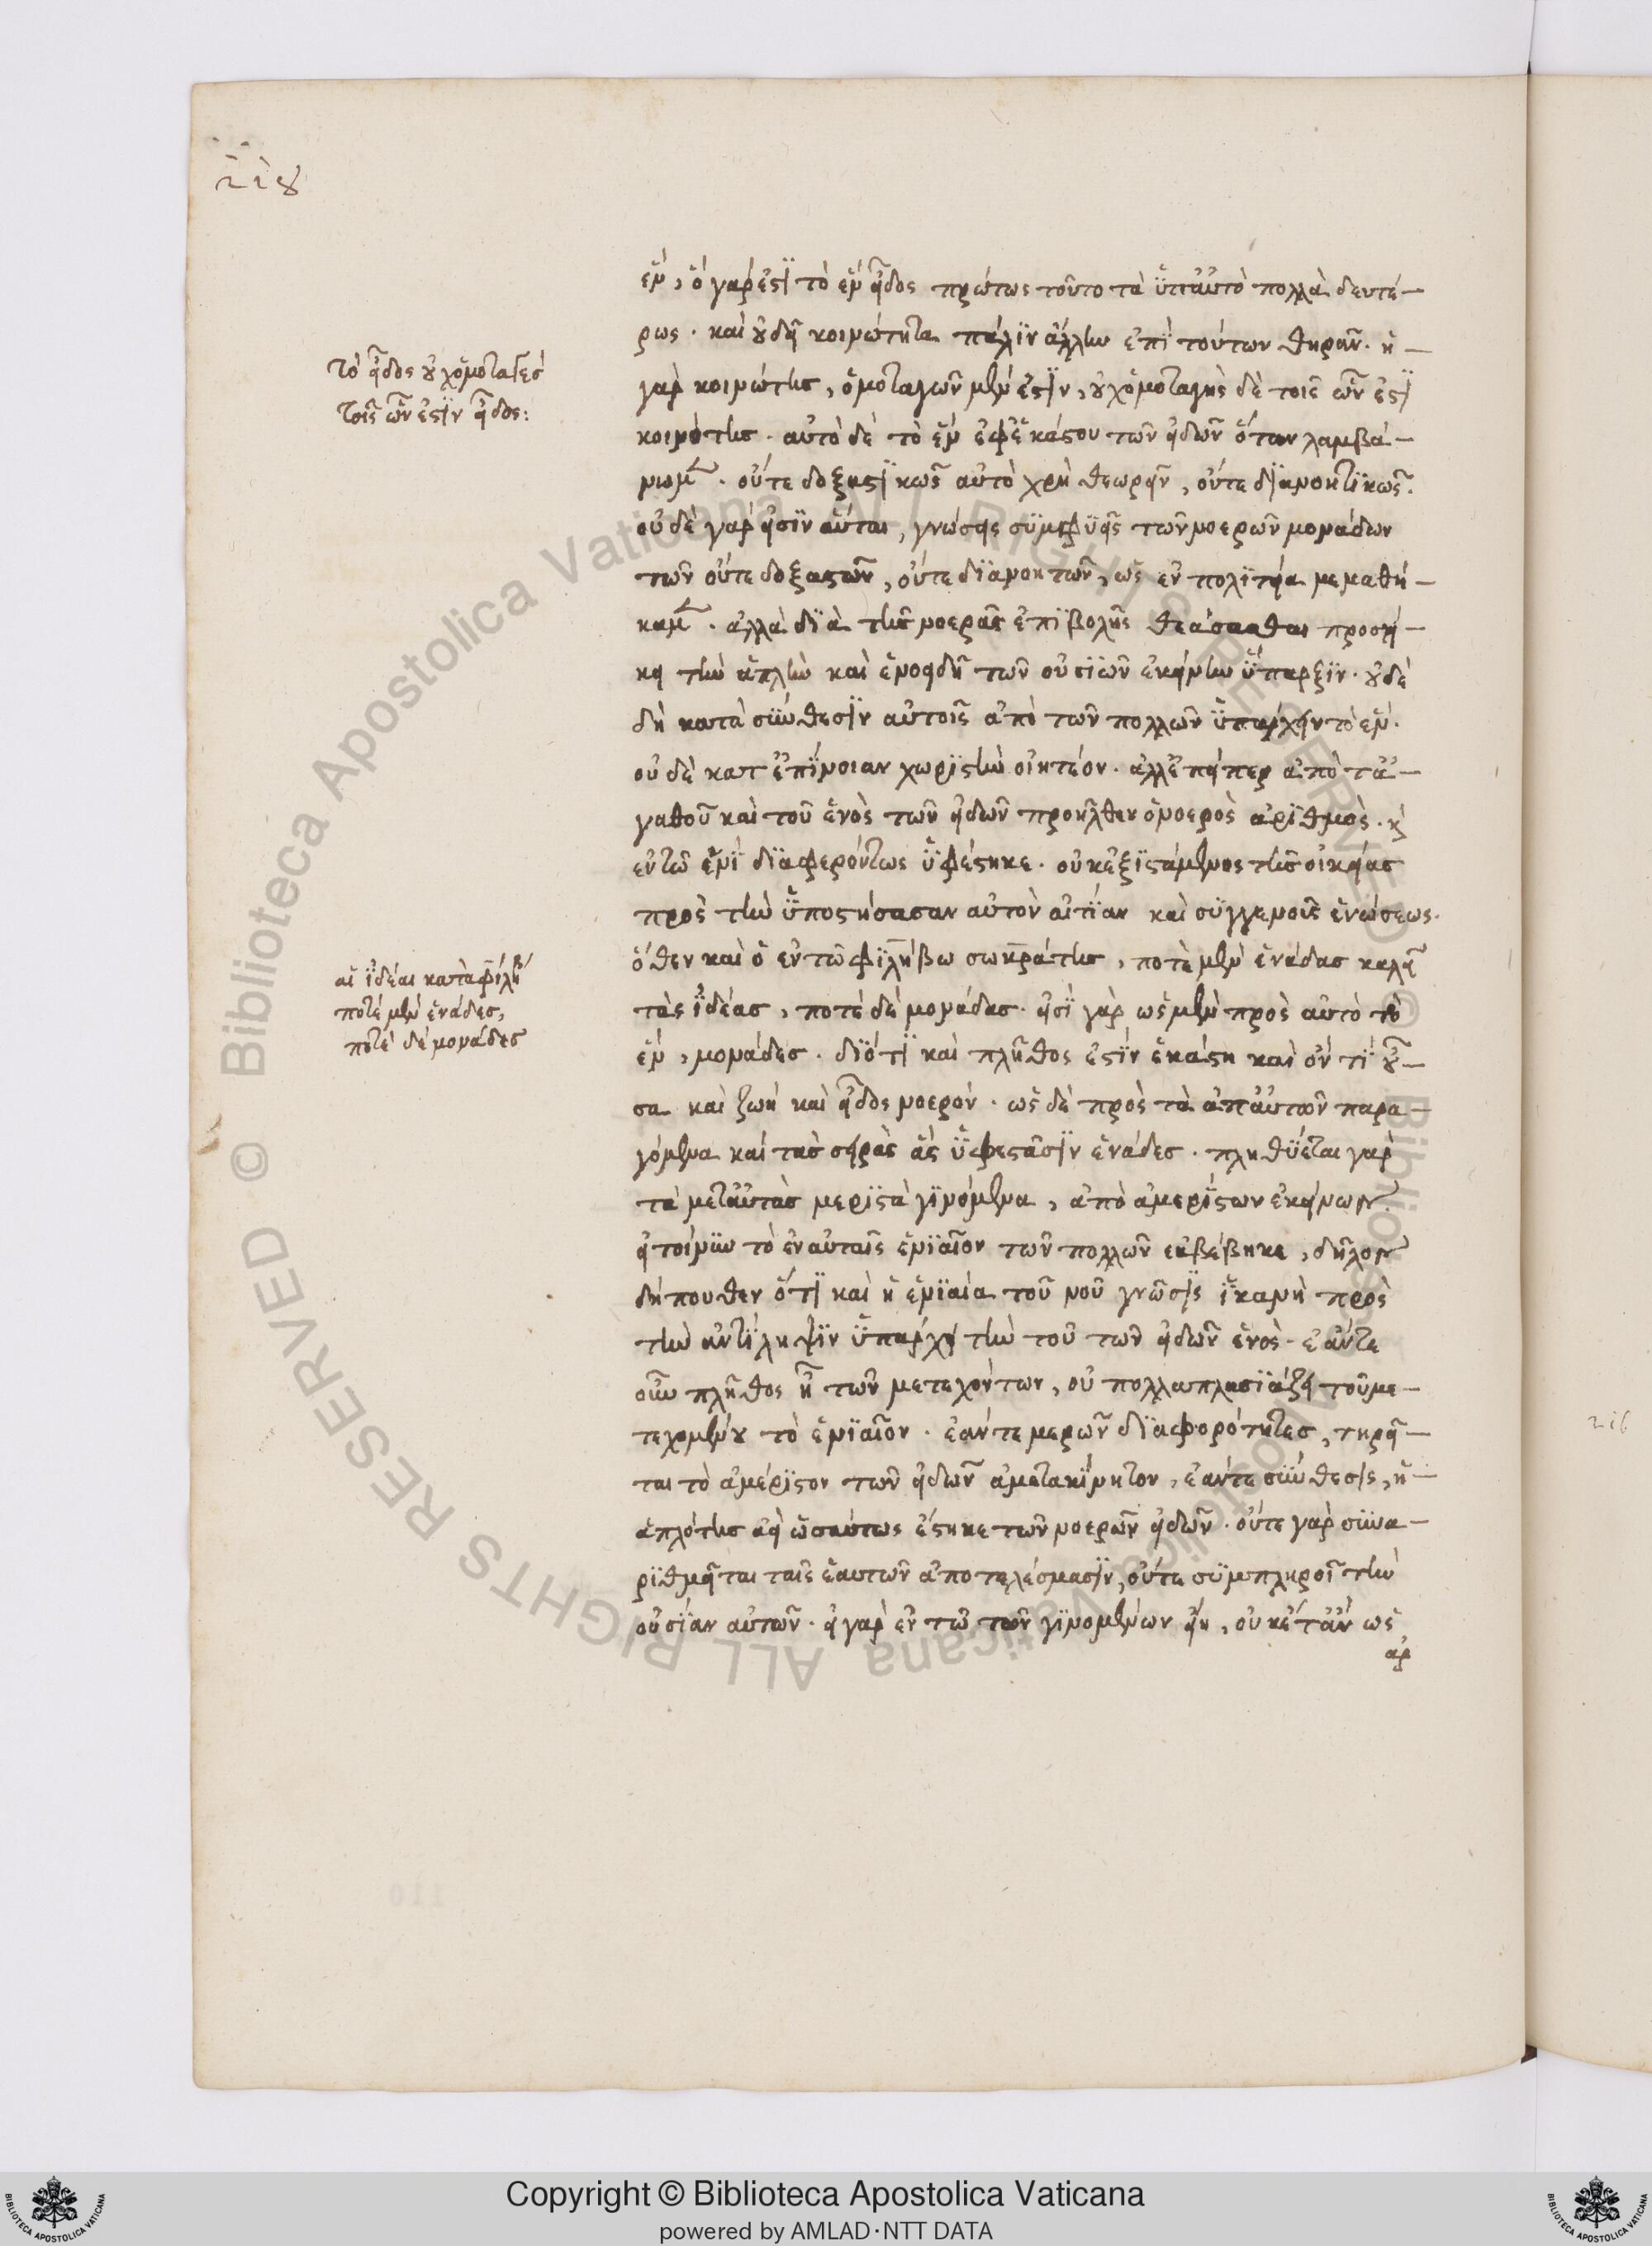 ἕν, ὃ γάρ ἐστι τὸ ἓν εἶδος πρώτως τοῦτο τὰ ὑπ᾽ αὐτὸ πολλὰ δευτέ-
ρως. καὶ οὐ δεῖ κοινότητα πάλιν ἄλλην ἐπὶ τούτων θηρᾶν. ἡ
γὰρ κοινότης, ὁμοταγῶν μέν ἐστιν, οὐχ ὁμοταγὴς δὲ τοῖς ὧν ἐστὶ
κοινότης. αὐτὸ δὲ τὸ ἓν ἐφ᾽ ἑκάστου τῶν εἰδῶν ὅταν λαμβά-
νωμεν. οὔτε δοξαστικῶς αὐτὸ χρὴ θεωρεῖν, οὔτε διανοητικῶς.
οὐδὲ γάρ εἰσιν αὗται, γνώσεις συμφυεῖς τῶν νοερῶν μονάδων
τῶν οὔτε δοξαστῶν, οὔτε διανοητῶν, ὡς ἐν πολιτεία μεμαθή-
καμεν. ἀλλὰ διὰ τῆς νοερᾶς ἐπιβολῆς θεάσασθαι προσή-
κει τὴν ἁπλὴν καὶ ἑνοειδῆ τῶν οὐσιῶν ἐκείνην ὕπαρξιν. οὐδὲ
δὴ κατὰ σύνθεσιν αὐτοῖς ἀπὸ τῶν πολλῶν ὑπάρχειν τὸ ἕν.
οὐδὲ κατ᾽ ἐπίνοιαν χωριστὴν οἰητέον. ἀλλ᾽ ἐπείπερ ἀπὸ τἀ-
γαθοῦ καὶ τοῦ ἑνὸς τῶν εἰδῶν προῆλθεν ὁ νοερὸς ἀριθμὸς. καὶ
ἐν τῶ ἑνὶ διαφερόντως ὑφέστηκε. οὐκ ἐξιστάμενος τῆς οἰκείας
πρὸς τὴν ὑποστήσασαν αὐτὸν αἰτίαν καὶ συγγενοῦς ἑνώσεως.
ὅθεν καὶ ὁ ἐν τῶ φιλήβω σωκράτης, ποτὲ μὲν ἑνάδας καλεῖ
τὰς ἰδέας, ποτὲ δὲ μονάδας. εἰσὶ γὰρ ὡς μὲν πρὸς αὐτὸ τὸ
ἕν, μονάδες. διότι καὶ πλῆθος ἐστὶν ἑκάστη καὶ ὄν τι οὖ-
σα καὶ ζωὴ καὶ εἶδος νοερόν. ὡς δὲ πρὸς τὰ ἀπ᾽ αὐτῶν παρα-
γόμενα καὶ τὰς σειρὰς ἃς ὑφεστᾶσιν ἑνάδες. πληθύεται γὰρ
τὰ μετ᾽ αὐτὰς μεριστὰ γινόμενα, ἀπὸ ἀμερίστων ἐκείνων.
εἰ τοίνυν τὸ ἐν αὐταῖς ἑνιαῖον τῶν πολλῶν ἐκβέβηκε, δῆλον
δήπουθεν ὅτι καὶ ἡ ἑνιαία τοῦ νοῦ γνῶσις ἱκανὴ πρὸς
τὴν ἀντίληψιν ὑπάρχει τὴν τοῦ τῶν εἰδῶν ἑνός. ἐάν τε
οὖν πλῆθος ᾖ τῶν μετεχόντων, οὐ πολλαπλασιάζει τοῦ με-
τεχομένου τὸ ἑνιαῖον. ἐάν τε μερῶν διαφορότητες, τηρεῖ-
ται τὸ ἀμέριστον τῶν εἰδῶν ἀμετακίνητον, ἐάν τε σύνθεσις, ἡ
ἁπλότης ἀεὶ ὡσαύτως ἕστηκε τῶν νοερῶν εἰδῶν. οὔτε γὰρ συνα-
ριθμεῖται ταῖς ἑαυτῶν ἀποτελέσμασιν, οὔτε συμπληροῖ τὴν
οὐσίαν αὐτῶν. εἰ γὰρ ἐν τῶ τῶν γινομένων εἴη, οὐκέτ᾽ ἂν ὡς
ἀρ
τὸ εἶδος οὐχ ὁμοταγὲς
τοῖς ὧν ἐστὶν εἶδος:
αἱ ἰδέαι κατὰ φίληβον
ποτὲ μὲν ἑνάδες,
ποτὲ δὲ μονάδες
Copyright © Biblioteca Apostolica Vaticana
powered by AMLAD·NTT DATA
© Biblioteca Apostolica Vaticana ALL RIGHTS RESERVED
© Biblioteca Apostolica Vaticana ALL RIGHTS RESERVED